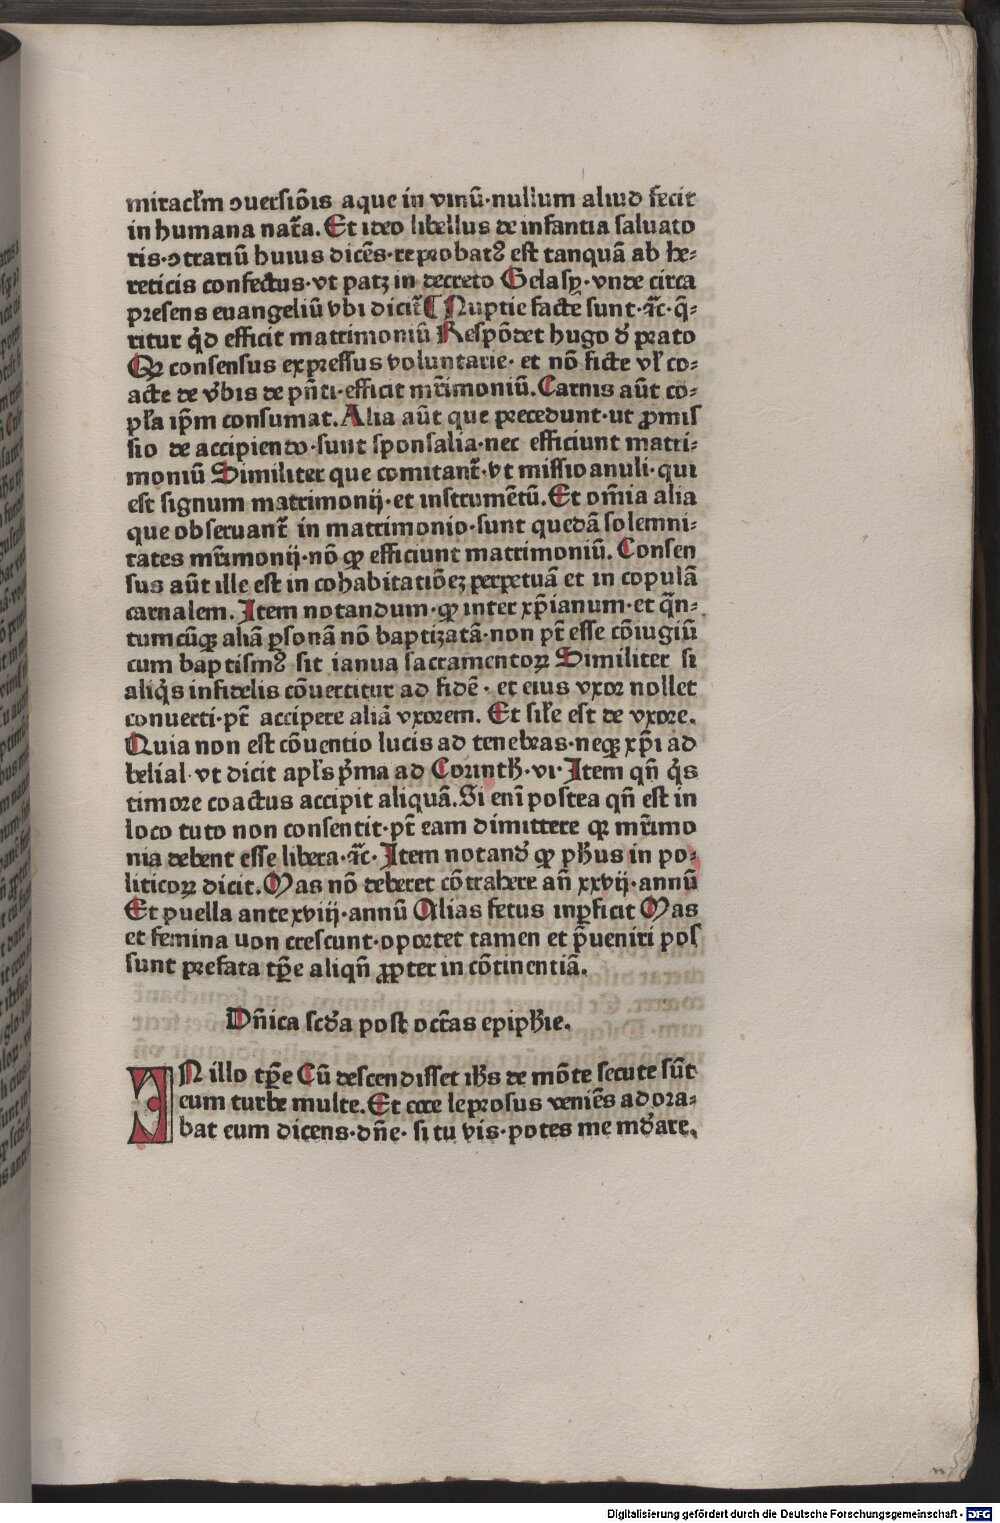 miracl̃m ꝯuersiõis aque in vinũ·nullum aliud fecit
in humana nat̃a. Et ideo libellus de infantia saluato
ris·ꝯtrariũ huius dicẽs·reprobatꝰ est tanquã ab he-
reticis confectus·vt patꝫ in decreto Gelasij·vnde circa
presens euangeliũ vbi dicit̃ ¶ Nuptie facte sunt·⁊c·q̃-
ritur q̇d efficit matrimoniũ Respõdet hugo đ prato
Qꝛ consensus expressus voluntarie· et nõ ficte vl̓ co-
acte de v̓bis de pñti·efficit mr̃imoniũ. Carnis aũt co-
pl̓a ip̃m consumat. Alia aũt que precedunt·ut ꝓmis
sio de accipiendo·sunt sponsalia·nec efficiunt matri-
moniũ Similiter que comitant̃·vt missio anuli·qui
est signum matrimonij·et instrumẽtũ. Et om̃ia alia
que obseruant̃ in matrimonio·sunt quedã solemni-
tates mr̃imonij·nõ ꝙ efficiunt matrimoniũ. Consen
sus aũt ille est in cohabitatiõeꝫ perpetuã et in copulã
carnalem. Item notandum·ꝙ inter xp̃ianum·et q̃n-
tumcũqꝫ aliã ꝑsonã nõ baptizatã·non pt̃ esse cõiugiũ
cum baptismꝰ sit ianua sacramentoꝝ Similiter si
aliq̇s infidelis cõuertitur ad fidẽ· et eius vxor nollet
conuerti·pt̃ accipere aliã vxorem. Et sil̓e est de vxore.
Quia non est cõuentio lucis ad tenebras·neqꝫ xp̃i ad
belial·vt dicit apl̓s p̓ma ad Corinth̃·vi· Item qñ q̇s
timore coactus accipit aliquã. Si eni᷑ postea qñ est in
loco tuto non consentit·pt̃ eam dimittere qꝛ mr̃imo
nia debent esse libera·⁊c· Item notanđ ꝙ ph̃us in po-
liticoꝝ dicit. Mas nõ deberet cõtrahere añ xxvij·annũ
Et puella ante xviij·annũ Alias fetus inꝑficit Mas
et femina uon crescunt·oportet tamen et p̃ueniri pos
sunt prefata tp̃e aliqñ ꝓpter in cõtinentiã.
Dñica scđa post octãs epiph̃ie.
IN illo tp̃e Cũ descendisset ih̃s de mõte secute sũt
eum turbe multe. Et ecce leprosus veniẽs adora-
bat eum dicens·dñe· si tu vis·potes me mũđare.
Digitalisierung gefördert durch die Deutsche Forschungsgemeinschaft - DFG